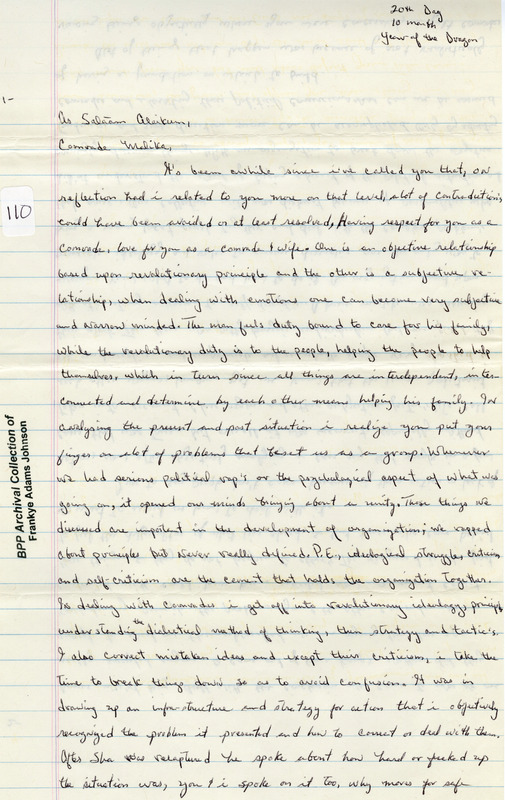 20th Day
10 month
Year of the Dragon
1-
As Salaam Alaikum,
Comrade Malika,
It's been awhile since i've called you that, on
reflection had i related to you more on that level, alot of contradictions
could have been avoided or at least resolved, Having respect for you as a
comrade, love for you as a comrade & wife. One is an objective relationship
based upon revolutionary principle and the other is a subjective re-
lationship, when dealing with emotions one can become very subjective
and narrow minded. The man feels duty bound to care for his family,
while the revolutionary duty is to the people, helping the people to help
themselves, which in turn since all things are interdependent, inter-
connected and determine by each other means helping his family. In
analyzing the present and past situation i realize you put your
finger on alot of problems that beset us as a group. Whenever
we had serious political rap's or the psychological aspect of what was
going on, it opened our minds bringing about a unity. Those things we
discussed are important in the development of organization; we rapped
about principles but never really defined. P.E., ideological struggle, criticism
and self criticism are the cement that holds the organization together.
In dealing with comrades i get off into revolutionary ideology, principle
understanding the dialectical method of thinking, then strategy and tactic's.
I also correct mistaken ideas and except their criticism, i take the
time to break things down so as to avoid confusion. It was in
drawing up an infra-structure and strategy for action that i objectively
recognized the problem it presented and how to correct or deal with them.
After Sha was recaptured he spoke about how hard or fucked up
the situation was, you & i spoke on it too, why moves for safe
110
BPP Archival Collection of
Frankye Adams Johnson